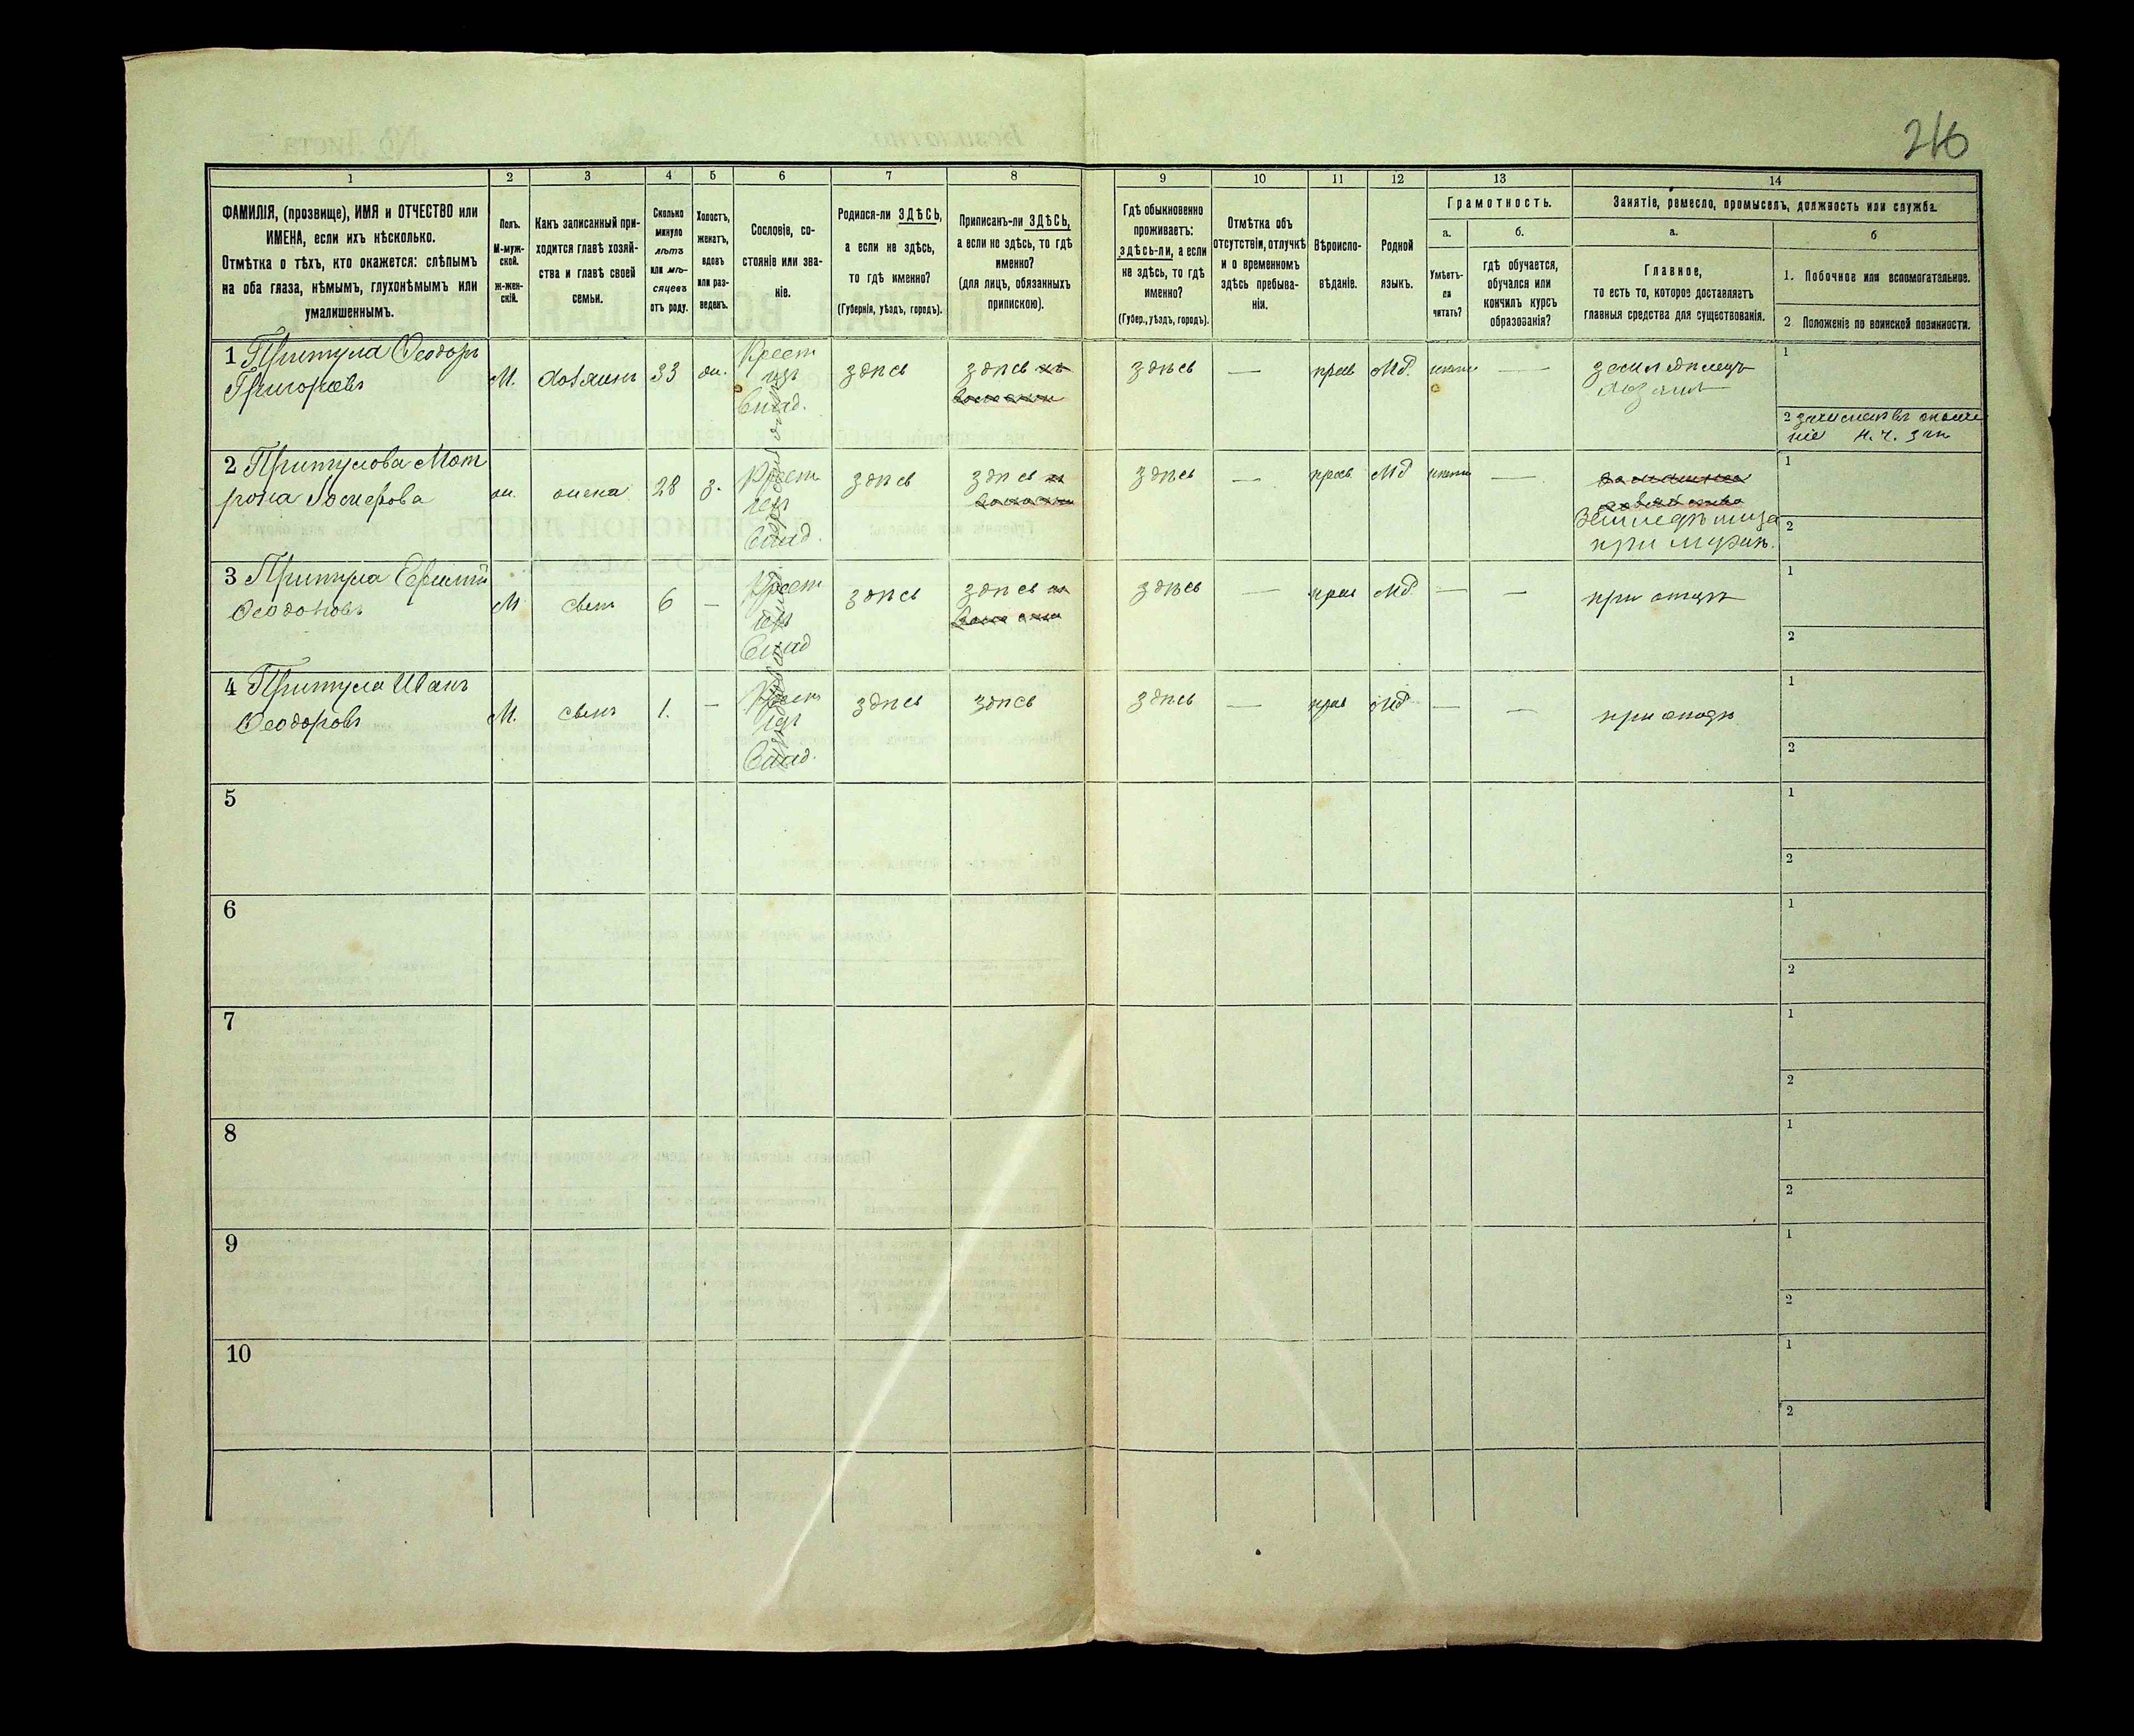 216
1 2 3 4 5 6 7 8 9 10 11 12 13 14
ФАМИЛІЯ, (прозвище), ИМЯ и ОТЧЕСТВО или
ИМЕНА, если ихъ нѣсколько.
Отмѣтка о тѣхъ, кто окажется: слѣпымъ
на оба глаза, нѣмымъ, глухонѣмымъ или
умалишеннымъ.
Полъ.
М-муж-
ской.
Ж-жен-
скій.
Какъ записанный при-
ходится главѣ хозяй-
ства и главѣ своей
семьи.
Сколько
минуло
лѣтъ
или мѣ-
сяцевъ
отъ роду.
Холостъ,
женатъ,
вдовъ
или раз-
веденъ.
Сословіе, со-
стояніе или зва-
ніе.
Родился-ли ЗДѢСЬ,
а если не здѣсь,
то гдѣ именно?
(Губернія, уѣздъ, городъ).
Приписанъ-ли ЗДѢСЬ,
а если не здѣсь, то гдѣ
именно?
(для лицъ, обязанныхъ
припискою).
Гдѣ обыкновенно
проживаетъ:
здѣсь-ли, а если
не здѣсь, то гдѣ
именно?
(Губер., уѣздъ, городъ).
Отмѣтка объ
отсутствіи, отлучкѣ
и о временномъ
здѣсь пребыва-
ніи.
Вѣроиспо-
вѣданіе.
Родной
языкъ.
Грамотность.
а.
Умѣетъ-
ли
читать?
б.
гдѣ обучается,
обучался или
кончилъ курсъ
образованія?
Занятіе, ремесло, промыселъ, должность или служба.
а.
Главное,
то есть то, которое доставляетъ
главныя средства для существованія.
б
1. Побочное или вспомогательное.
2 Положеніе по воинской повинности.
1 Притула Ѳеодоръ
Григорьевъ
М. хозяинъ 33 ж.
Крест
изъ
Влад.
здѣсь
здѣсь
здѣсь — прав Мл. —
земледѣлецъ
хозяинъ
1
2
2 Притулова Мот
рона
ж. жена 28 з.
Крест
изъ
Влад.
здѣсь
здѣсь
здѣсь — прав Мл —
домашнее
хозяйство
земледѣлица
при мужѣ.
1
2
3 Притула
Ѳеодоровъ
М сынъ 6 —
Крест
изъ
Влад
здѣсь
здѣсь
здѣсь — прав Мл — —
при отцѣ
1
2
4 Притула Иванъ
Ѳеодоровъ
М. сынъ 1. —
Крест
изъ
Влад.
здѣсь
здѣсь
здѣсь — прав Мл — —
при отцѣ
1
2
5
1
2
6
1
2
7
1
2
8
1
2
9
1
2
10
1
2